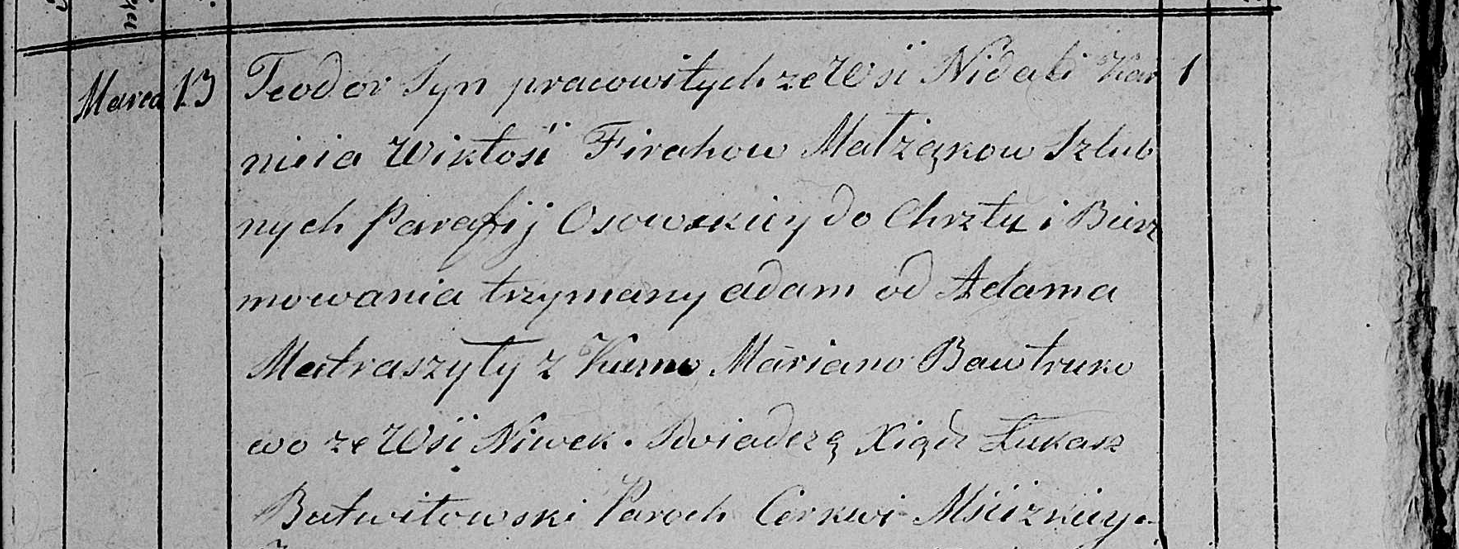 Marca 13 Teodor Syn pracowitych ze Wsi Nidali Kar 1
nieia Wiktosi Firahow Małżąkow Szlub
nych Parafij Osowskiey do Chrztu i Bierz
mowania trzymany adam od Adama
Matraszyty z Kumo Mariano Bawtruko
wo ze Wsi Niwek. Swiadczą Xiądz Łukasz
Butwiłowski Paroch Cerkwi Mściżkiey